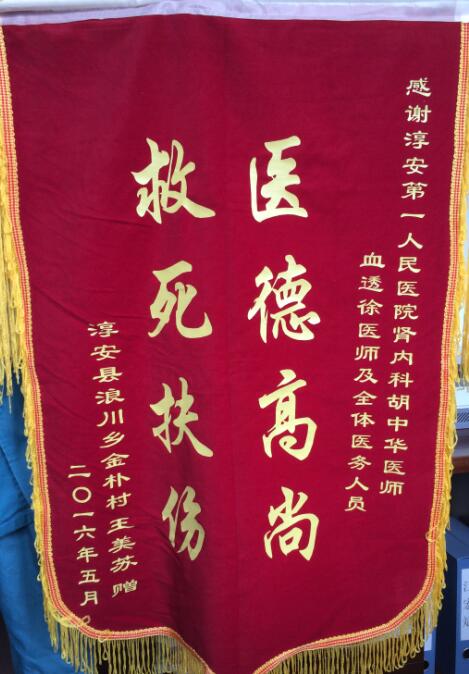 感谢淳安第一人民医院肾内科胡中华医师
血透徐医师及全体医务人员
医德高尚
救死扶伤
淳安县浪川乡金朴村王美苏赠
二〇一六年五月